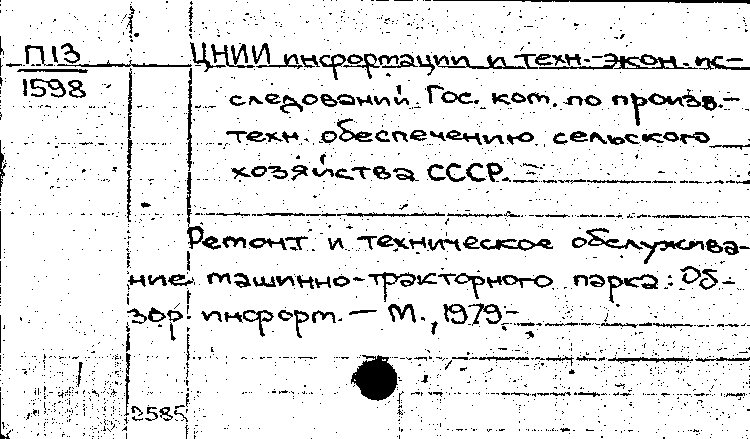 П13
1598
ЦНИИ информации и техн.-экон. ис-
следований Гос. ком. по произв.-
техн. обеспечению сельского
хозяйства СССР.
Ремонт и техническое обслужива-
ние машинно-тракторного парка: Об-
зор. информ. — М., 1979-
2585